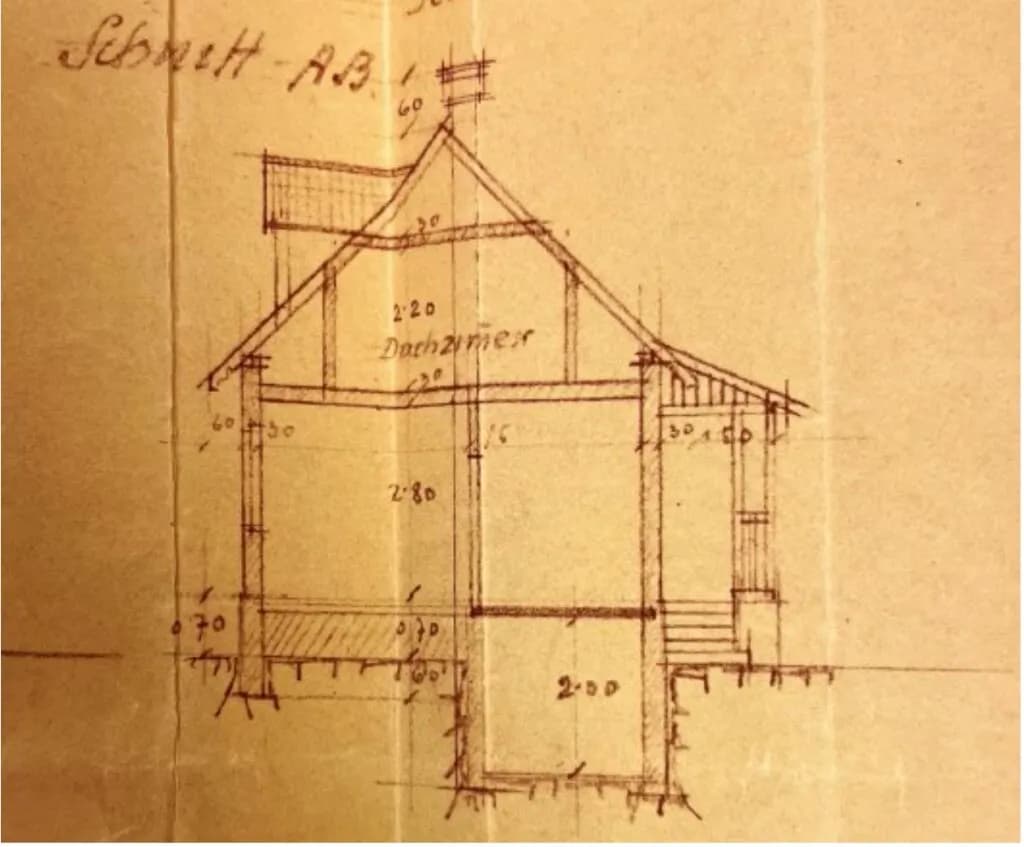 Schnitt - AB.
60
30
2·20
Dachzim̄er
30
60 30 15 30 1 50
2·80
0 70 0 70
60
2·00